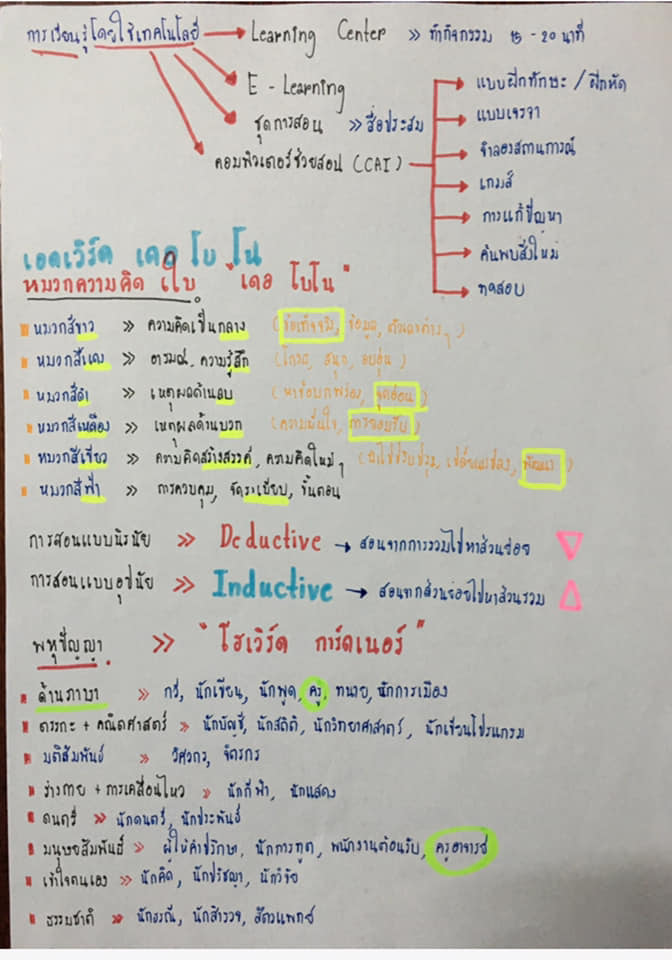 การเรียนรู้โดยใช้เทคโนโลยี → Learning Center » ทำกิจกรรม 15 - 20 นาที
E - Learning
ชุดการสอน » สื่อประสม
คอมพิวเตอร์ช่วยสอน (CAI)
แบบฝึกทักษะ / ฝึกหัด
แบบเจรจา
จำลองสถานการณ์
เกมส์
การแก้ปัญหา
ค้นพบสิ่งใหม่
ทดสอบ
เอดเวิร์ด เดอ โบ โน
หมวกความคิด 6 ใบ "เดอ โบโน"
หมวกสีขาว » ความคิดเป็นกลาง (ข้อเท็จจริง, ข้อมูล, ตัวเลขต่างๆ)
หมวกสีแดง » อารมณ์, ความรู้สึก (โกรธ, สนุก, อบอุ่น)
หมวกสีดำ » เหตุผลด้านลบ (หาข้อบกพร่อง, จุดอ่อน)
หมวกสีเหลือง » เหตุผลด้านบวก (ความมั่นใจ, การยอมรับ)
หมวกสีเขียว » ความคิดสร้างสรรค์, ความคิดใหม่ๆ (พัฒนา)
หมวกสีฟ้า » การควบคุม, จัดระเบียบ, ขั้นตอน
การสอนแบบนิรนัย » Deductive → สอนจากการรวมไปหาส่วนย่อย
การสอนแบบอุปนัย » Inductive → สอนจากส่วนย่อยไปหาส่วนรวม
พหุปัญญา » "โฮเวิร์ด การ์ดเนอร์"
ด้านภาษา » กวี, นักเขียน, นักพูด, ครู, ทนาย, นักการเมือง
ตรรกะ + คณิตศาสตร์ » นักบัญชี, นักสถิติ, นักวิทยาศาสตร์, นักเขียนโปรแกรม
มิติสัมพันธ์ » วิศวกร, จิตรกร
ร่างกาย + การเคลื่อนไหว » นักกีฬา, นักแสดง
ดนตรี » นักดนตรี, นักประพันธ์
มนุษยสัมพันธ์ » ผู้ให้คำปรึกษา, นักการทูต, พนักงานต้อนรับ, ครูอาจารย์
เข้าใจตนเอง » นักคิด, นักปรัชญา, นักวิจัย
ธรรมชาติ » นักธรณี, นักสำรวจ, สัตวแพทย์